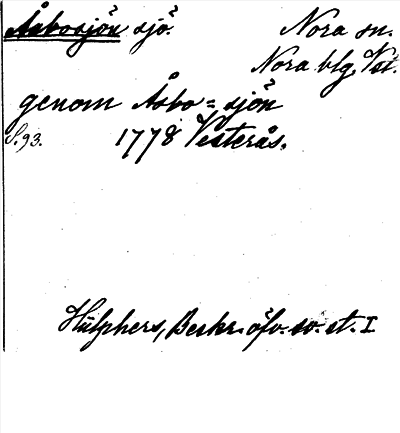 Åsbosjön sjö. Nora sn.
Nora blg, Vst.
genom Åsbo=sjön
S. 93. 1778 Vesterås.
Hülphers, Beskr. öfv. sv. st. I